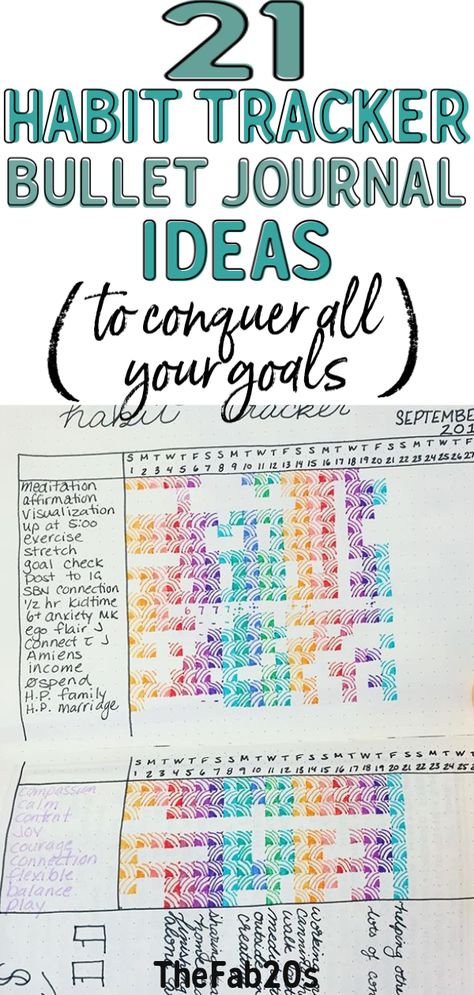 21
HABIT TRACKER
BULLET JOURNAL
IDEAS
(to conquer all
your goals)
habit tracker
SEPTEMBE
201
S M T W T F S S M T W T F S S M T W T F S S M T W T F
1 2 3 4 5 6 7 8 9 10 11 12 13 14 15 16 17 18 19 20 21 22 23 24 25 26 27
meditation
affirmation
visualization
up at 5:00
exercise
stretch
goal check
post to IG
SBN connection
1/2 hr kidtime
6+ anxiety MK
6 7 7 7
ego flair J
connect T J
Amiens
income
Øspend
H.P. family
H.P. marriage
S M T W T F S S M T W T F S S M T W T F S S M T W
1 2 3 4 5 6 7 8 9 10 11 12 13 14 15 16 17 18 19 20 21 22 23 24 25
compassion
calm
content
joy
courage
connection
flexible
balance
play
helping othe
lots of con
working
walk
outside
made
TheFab20s